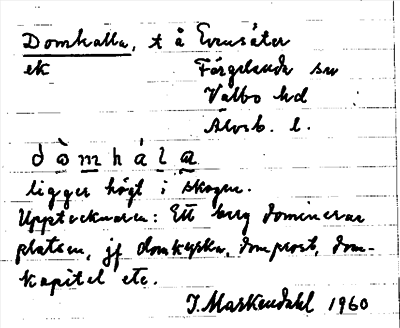 Domhalla, t å Evensäter
ek Färgelanda sn
Valbo hd
Älvsb. l.
d ò m h á l a
ligger högt i skogen.
Upptecknaren: Ett berg dominerar
platsen, jf domkyrka, domprost, dom-
kapitel etc.
J. Markendahl 1960